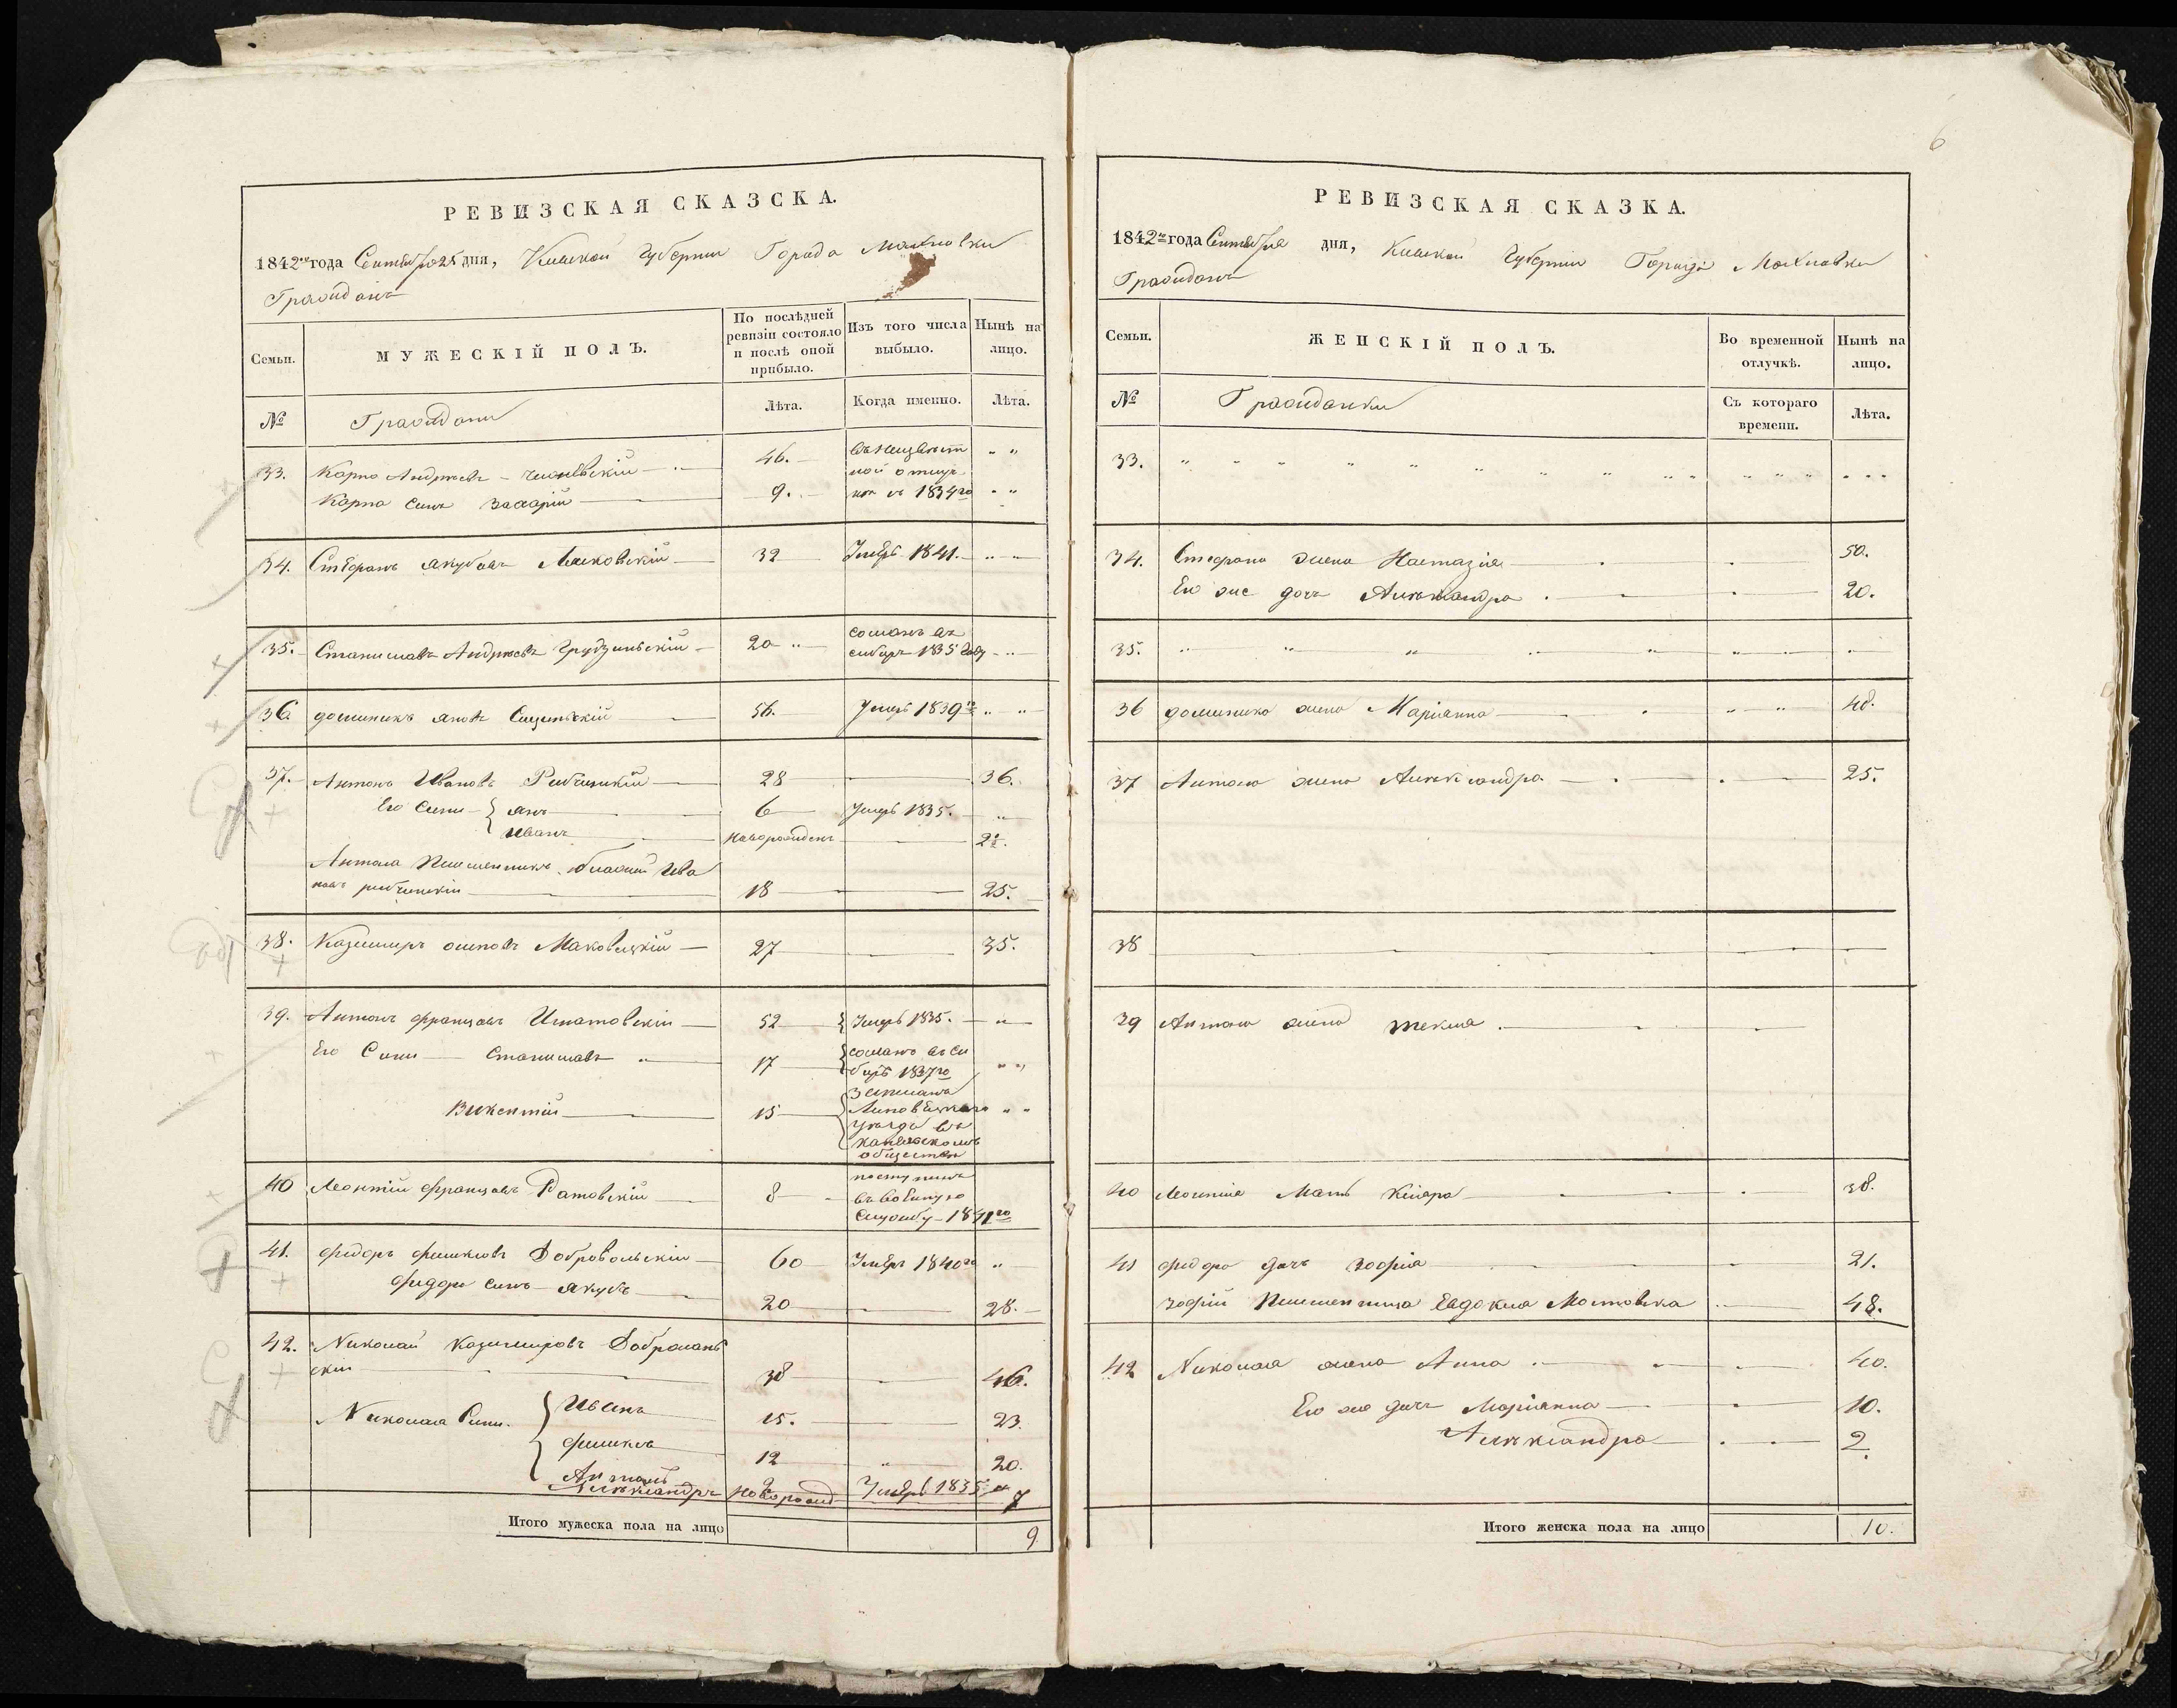 6
РЕВИЗСКАЯ СКАЗСКА.
1842го года Сентября 25 дня, Киевской Губернии Города Махновки
Граждане
Семьи.
МУЖЕСКІЙ ПОЛЪ.
По послѣдней ревизіи состояло и послѣ оной прибыло.
Изъ того числа выбыло.
Нынѣ на лицо.
№
Граждани
Лѣта.
Когда именно.
Лѣта.
33. Карпо Андреевъ 46. въ неизвѣст „ „
ной отлуч
Карпа Синъ Захарій 9. ки съ 1834го „ „
34. Стефанъ Якубовъ 32 Умеръ 1841. „
35. Станиславъ Андреевъ Грудзинскій 20 „ сосланъ въ
сибиръ 1835 году „
36. Доминикъ Яновъ 56. Умеръ 1839го „ „
37. Антонъ Ивановъ 28 36.
Его Сини Янъ 6 Умеръ 1835. „
Иванъ Новорожденъ 2½.
Антона Племенникъ Ива
новъ 18 25.
38. Казимиръ Осиповъ Маковецкій 27 35.
39. Антонъ Францовъ Игнатовскій 52 Умеръ 1835. „
Его Сини Станиславъ „ 17 сосланъ въ Си
биръ 1837го „ „
Викентій 15 Записанъ
Липовецкаго „ „
уезда въ
обществѣ
40 Леонтій Францовъ Ратовскій 8 поступилъ
въ Военную
Службу 1841го
41. Федоръ Добровольскій 60 Умеръ 1840го „
Федора Синъ Якубъ 20 28.
42. Николай Казимировъ
скій 38 46.
Николая Сини. Иванъ 15. 23.
12 „ 20.
Антонъ 2 Умеръ 1835 „
Александръ Новорожд 7
Итого мужеска пола на лицо 9.
РЕВИЗСКАЯ СКАЗКА.
1842го года Сентября дня, Киевской Губернии Города Махновки
Граждане
Семьи.
ЖЕНСКІЙ ПОЛЪ.
Во временной отлучкѣ.
Нынѣ на лицо.
№
Гражданки
Съ котораго времени.
Лѣта.
33. „ „ „ „ „ „ „ „ „
34. Стефана жена Настазія 50.
Его же дочь Александра 20.
35. „ „ „ „ „
36 Доминика жена Маріянна „ „ 48.
37 Антона жена Александра 25.
38
39 Антона жена Текля
40 Леонтія Мать Кляра 38.
41 Федора дочь Зофія 21.
Зофіи Племенница Евдокия 48.
42 Николая жена Анна 40.
Его же дочь Маріянна 10.
Александра 2.
Итого женска пола на лицо 10.